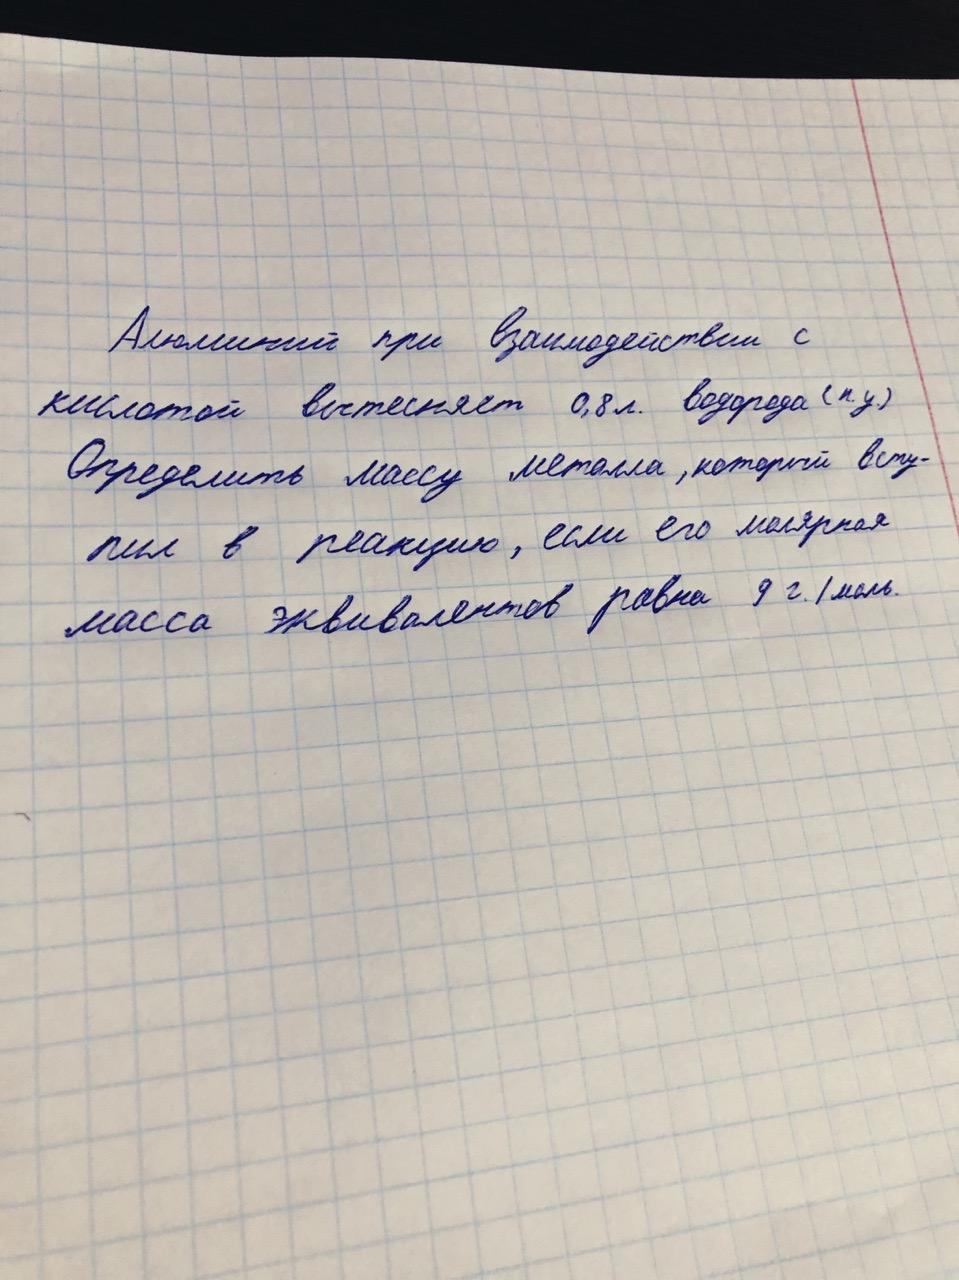 Алюминий при взаимодействии с
кислотой вытесняет 0,8 л. водорода (н.у.)
Определить массу металла, который всту-
пил в реакцию, если его молярная
масса эквивалентов равна 9 г./моль.